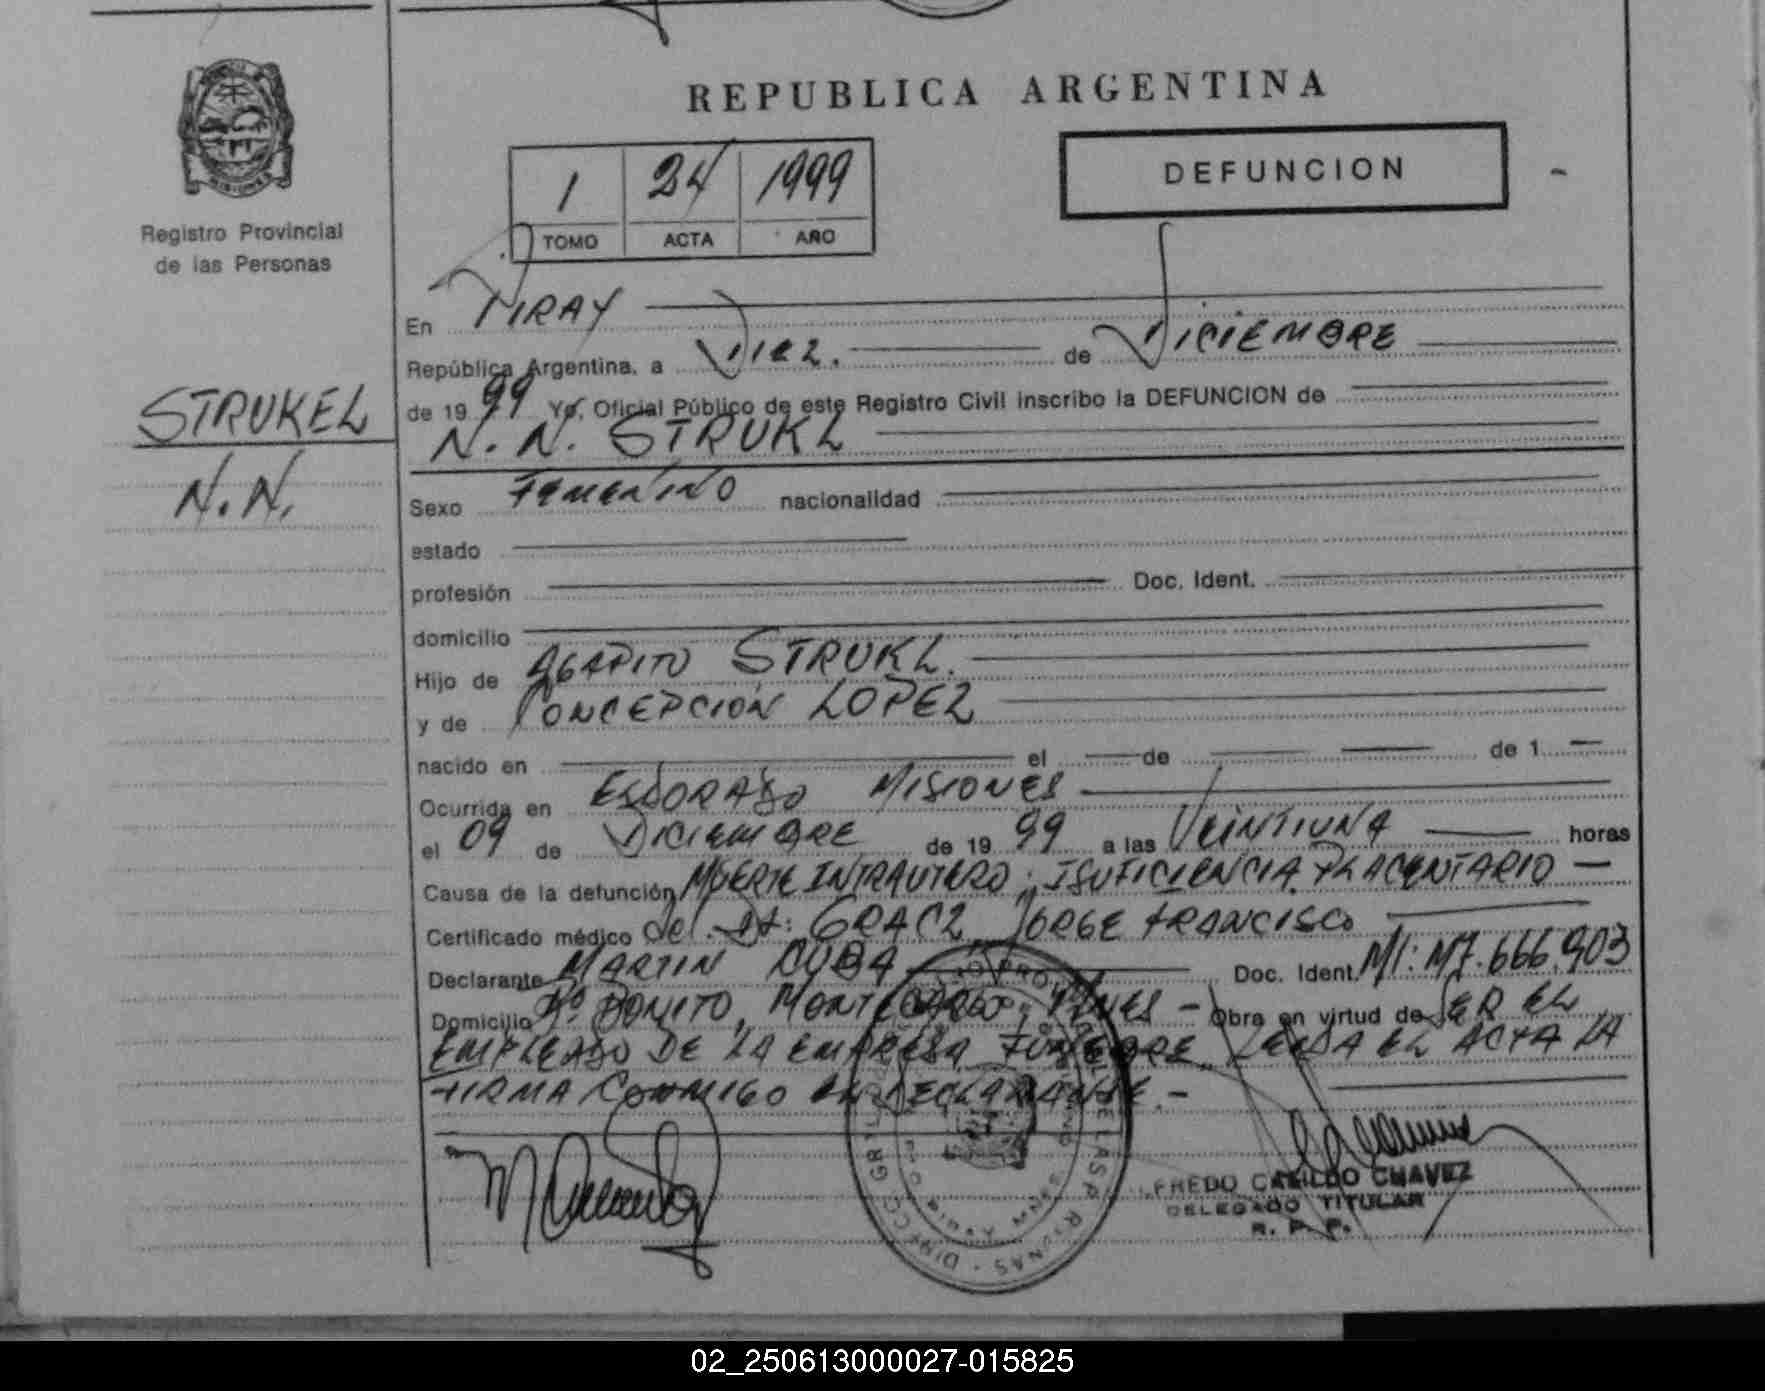 REPUBLICA ARGENTINA
MISIONES
Registro Provincial
de las Personas
1 24 1999
TOMO ACTA AÑO
DEFUNCION
STRUKEL
N.N.
En PIRAY
República Argentina, a DIEZ. de DICIEMBRE
de 1999 Yo, Oficial Público de este Registro Civil inscribo la DEFUNCION de
N. N. STRUKL
Sexo FEMENINO nacionalidad
estado
profesión Doc. Ident.
domicilio
Hijo de AGAPITO STRUKL.
y de CONCEPCION LOPEZ
nacido en el de de 1
Ocurrida en ELDORADO MISIONES
el 09 de DICIEMBRE de 1999 a las VEINTIUNA horas
Causa de la defunción MUERTE INTRAUTERO: ISUFICIENCIA PLACENTARIO
Certificado médico del. Dr: GRACZ JORGE FRANCISCO
Declarante MARTIN CUBA Doc. Ident. MI: M7.666.903
Domicilio Bº BONITO, MONTECARLO, MNES - Obra en virtud de SER EL
EMPLEADO DE LA EMPRESA FUNEBRE LEIDA EL ACTA LA
FIRMA CONMIGO EL DECLARANTE.-
CHAVEZ
DELEGADO TITULAR
R. P. P.
02_250613000027-015825